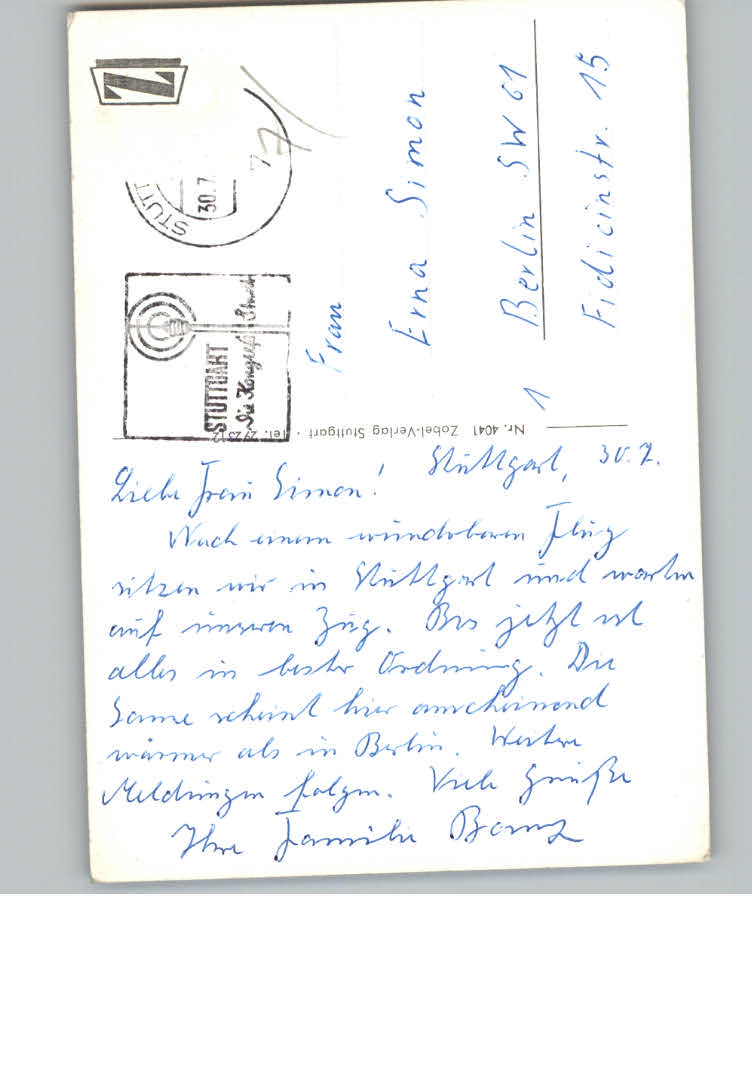 Stuttgart, 30.7.
Liebe Frau Simon!
Nach einem wunderbaren Flug
sitzen wir in Stuttgart und warten
auf unseren Zug. Bis jetzt ist
alles in bester Ordnung. Die
Sonne scheint hier anscheinend
wärmer als in Berlin. Weitere
Meldungen folgen. Viele Grüße
Ihre Familie
Frau
Erna Simon
1 Berlin SW 61
Fidicinstr. 15
STUTT
30.7
STUTTGART
Die Kongreß Stadt
Nr. 4041 Zobel-Verlag Stuttgart · Tel.